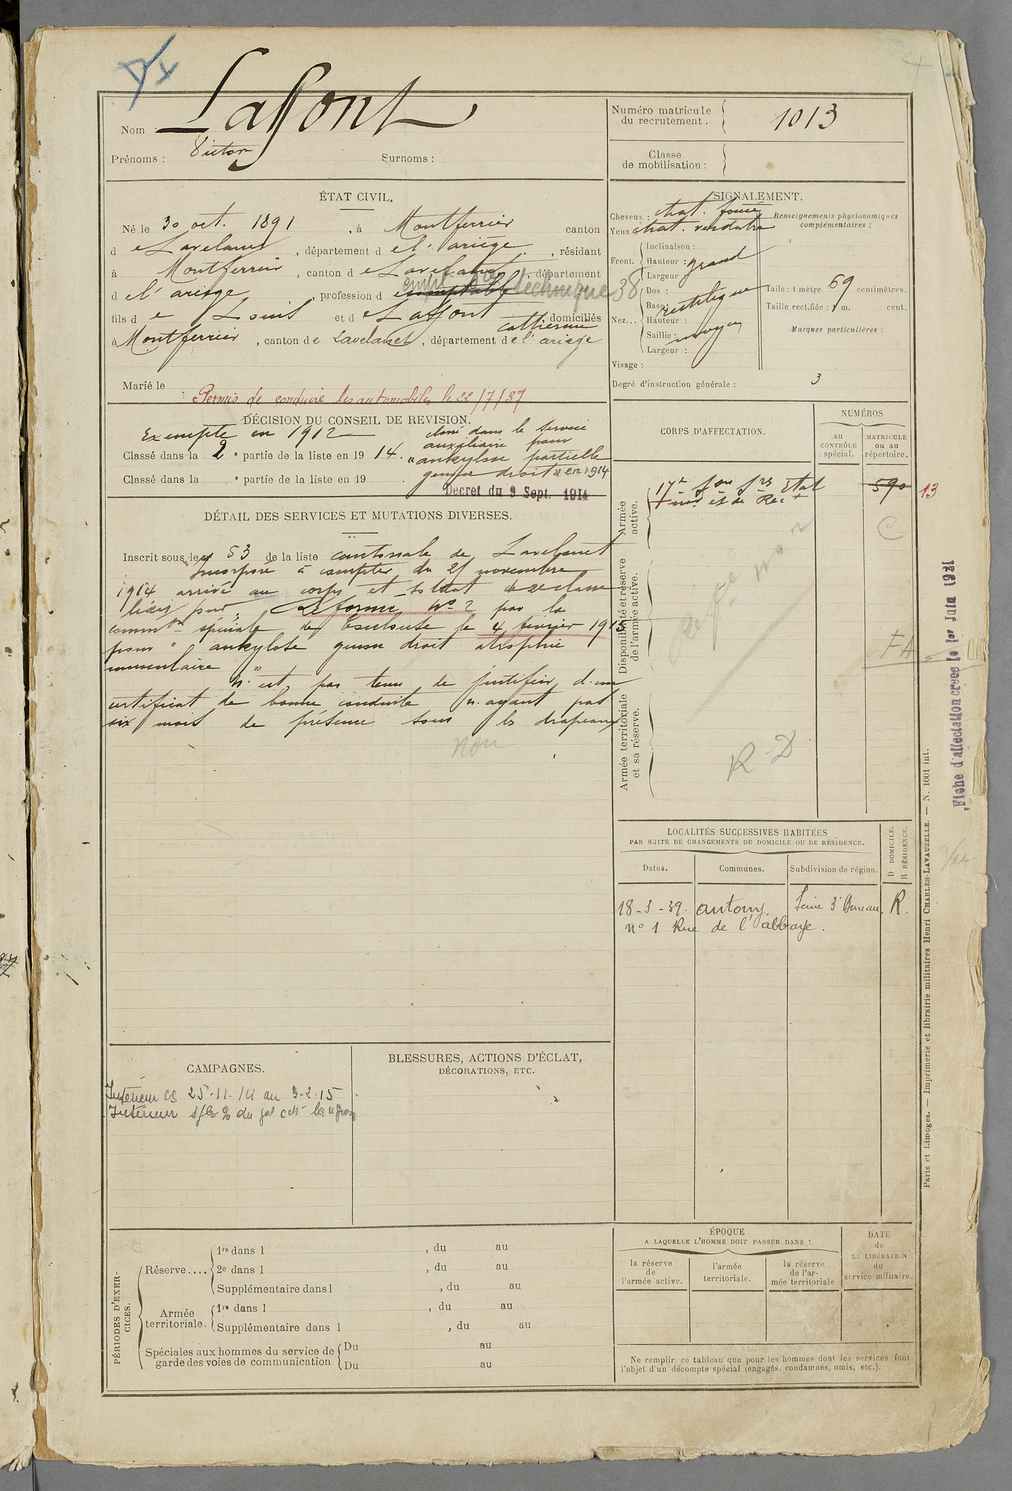 Nom Laffont
Prénoms : Victor Surnoms :
Numéro matricule du recutement . 1013
Classe de mobilisation :
ÉTAT CIVIL.
Né le 30 oct. 1891 , à Montferrier canton
d e Lavelanet , département d e l'ariège , résidant
à Montferrier , canton d e Lavelanet , département
d e l'ariège , profession d comptable technique 38
fils d e Louis et d e Laffont Catherine domiciliés
à Montferrier , canton de Lavelanet , département d e l'ariège
Marié le
Permis de conduire les automobiles le 22/7/37
SIGNALEMENT.
Cheveux : chat. foncé
Yeux chat. verdatre
Renseignements physionomiques complémentaires :
Front.
Inclinaison :
Hauteur : grand
Largeur
Nez...
Dos : rectiligne
Base :
Hauteur :
Saillie : moyen
Largeur :
Visage :
Taille : 1 mètre 69 centimètres.
Taille rectifiée : 1 m. cent.
Marques particulières :
Degré d'instruction générale : 3
DÉCISION DU CONSEIL DE REVISION.
Exempté en 1912
Classé dans la 2 e partie de la liste en 19 14.
classé dans le service
auxiliaire pour
"ankylose partielle
genou droit" en 1914
Classé dans la e partie de la liste en 19
Décret du 9 Sept. 1914
DÉTAIL DES SERVICES ET MUTATIONS DIVERSES.
Inscrit sous le n° 53 de la liste cantonale de Lavelanet
Incorporé à compter du 25 novembre
1914 arrivé au corps et soldat de 2e classe
le dit jour. Réformé N° 2 par la
common spéciale de Toulouse le 4 février 1915
pour " ankylose genou droit atrophie
musculaire "
N'est pas tenu de justifier d'un
certificat de bonne conduite n'ayant pas
six mois de présence sous les drapeaux
non
CORPS D'AFFECTATION.
NUMÉROS
AU CONTRÔLE spécial.
MATRICULE ou au répertoire.
Armée active.
590
13
C
Disponibilité et réserve de l'armée active.
Ref. e n° 2
FA
Armée territoriale et sa réserve.
R D
Fiche d'affectation créée le 1er Juin 1921
LOCALITÉS SUCCESSIVES HABITÉES
PAR SUITE DE CHANGEMENTS DE DOMICILE OU DE RÉSIDENCE.
D DOMICILE.
R RÉSIDENCE.
Dates. Communes. Subdivision de région.
18-3-39. antony Seine 3e Bureau R.
n° 1 Rue de l'abbaye.
Vu
CAMPAGNES.
Intérieur cs 25.11.14 au 3.2.15
Intérieur
BLESSURES, ACTIONS D'ÉCLAT,
DÉCORATIONS, ETC.
PÉRIODES D'EXERCICES.
Réserve....
1re dans l , du au
2e dans l , du au
Supplémentaire dans l , du au
Armée territoriale.
1re dans l , du au
Supplémentaire dans l , du au
Spéciales aux hommes du service de garde des voies de communication
Du au
Du au
ÉPOQUE
A LAQUELLE L'HOMME DOIT PASSER DANS :
la réserve de l'armée active.
l'armée territoriale.
la réserve de l'armée territoriale
DATE de LA LIBÉRATION du service militaire.
Ne remplir ce tableau que pour les hommes dont les services font
l'objet d'un décompte spécial (engagés, condamnés, omis, etc.).
Paris et Limoges. — Imprimerie et librairie militaires Henri CHARLES-LAVAUZELLE. — N. 1001 int.